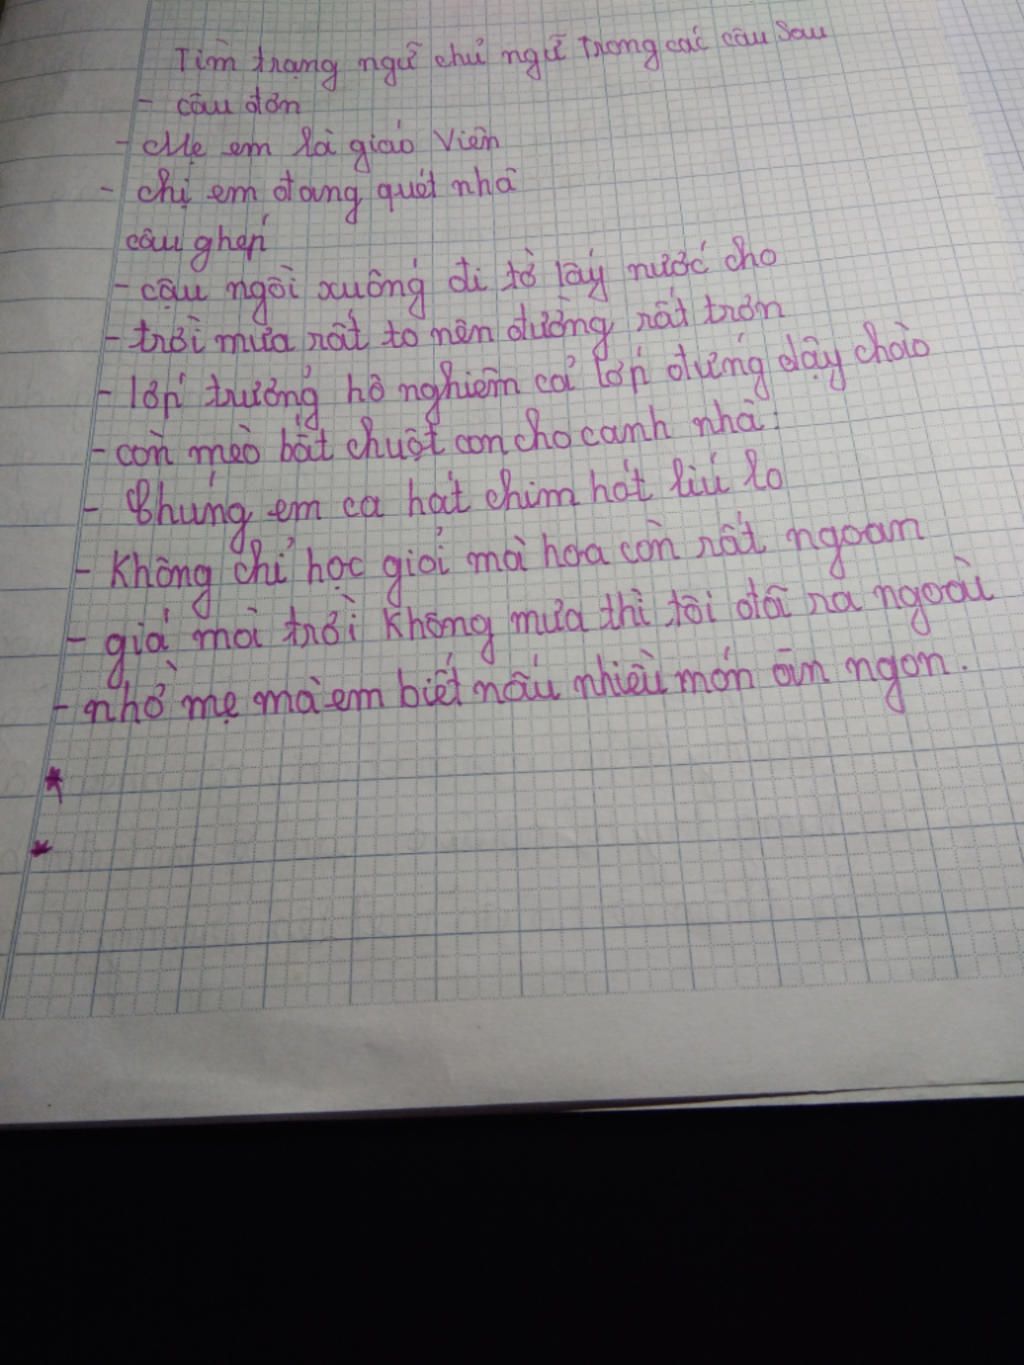 Tìm trạng ngữ chủ ngữ trong các câu sau
- câu đơn
- Mẹ em là giáo viên
- chị em đang quét nhà
câu ghép
- cậu ngồi xuống đi tớ lấy nước cho
- trời mưa rất to nên đường rất trơn
- lớp trưởng hô nghiêm cả lớp đứng dậy chào
- con mèo bắt chuột con cho canh nhà.
- Chúng em ca hát chim hót líu lo
- Không chỉ học giỏi mà hoa còn rất ngoan
- giá mà trời không mưa thì tôi đã ra ngoài
- nhờ mẹ mà em biết nấu nhiều món ăn ngon.
*
*